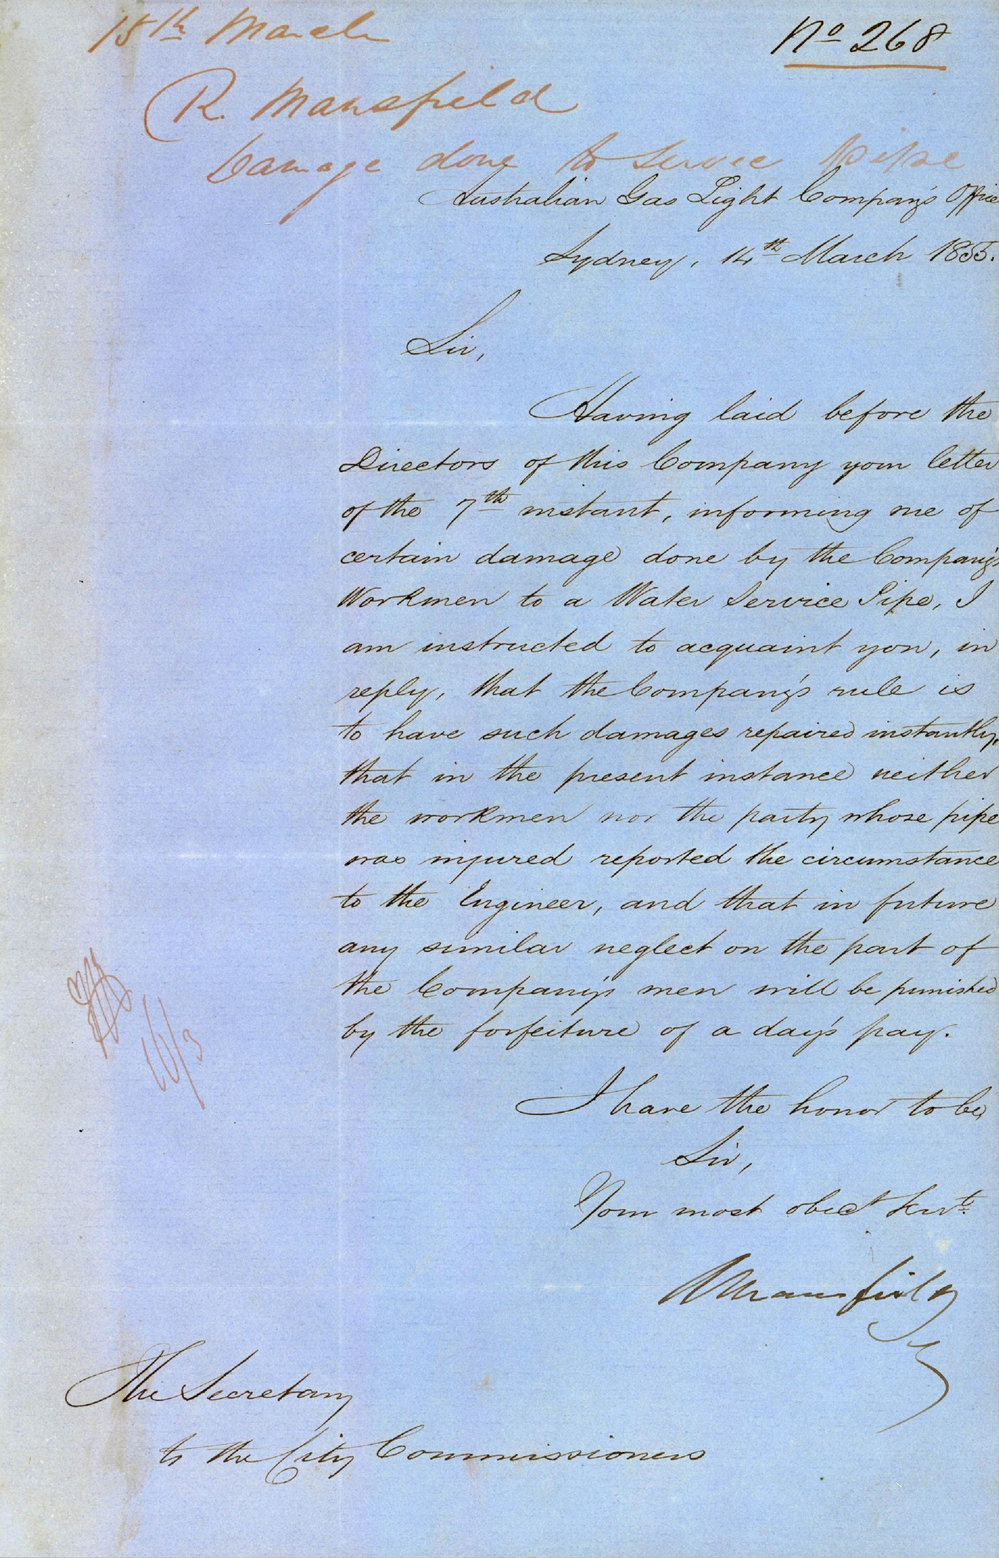 15th March
No 268
R. Mansfield
Damage done to service pipe
Australian Gas Light Company's Office
Sydney, 14th March 1855.
Sir,
Having laid before the
Directors of this Company your letter
of the 7th instant, informing me of
certain damage done by the Company's
Workmen to a Water Service Pipe, I
am instructed to acquaint you, in
reply, that the Company's rule is
to have such damages repaired instantly,
that in the present instance neither
the workmen nor the party whose pipe
was injured reported the circumstance
to the Engineer, and that in future
any similar neglect on the part of
the Company's men will be punished
by the forfeiture of a day's pay.
I have the honor to be,
Sir,
Your most obedt Servt.
R Mansfield
16/3
The Secretary
to the City Commissioners